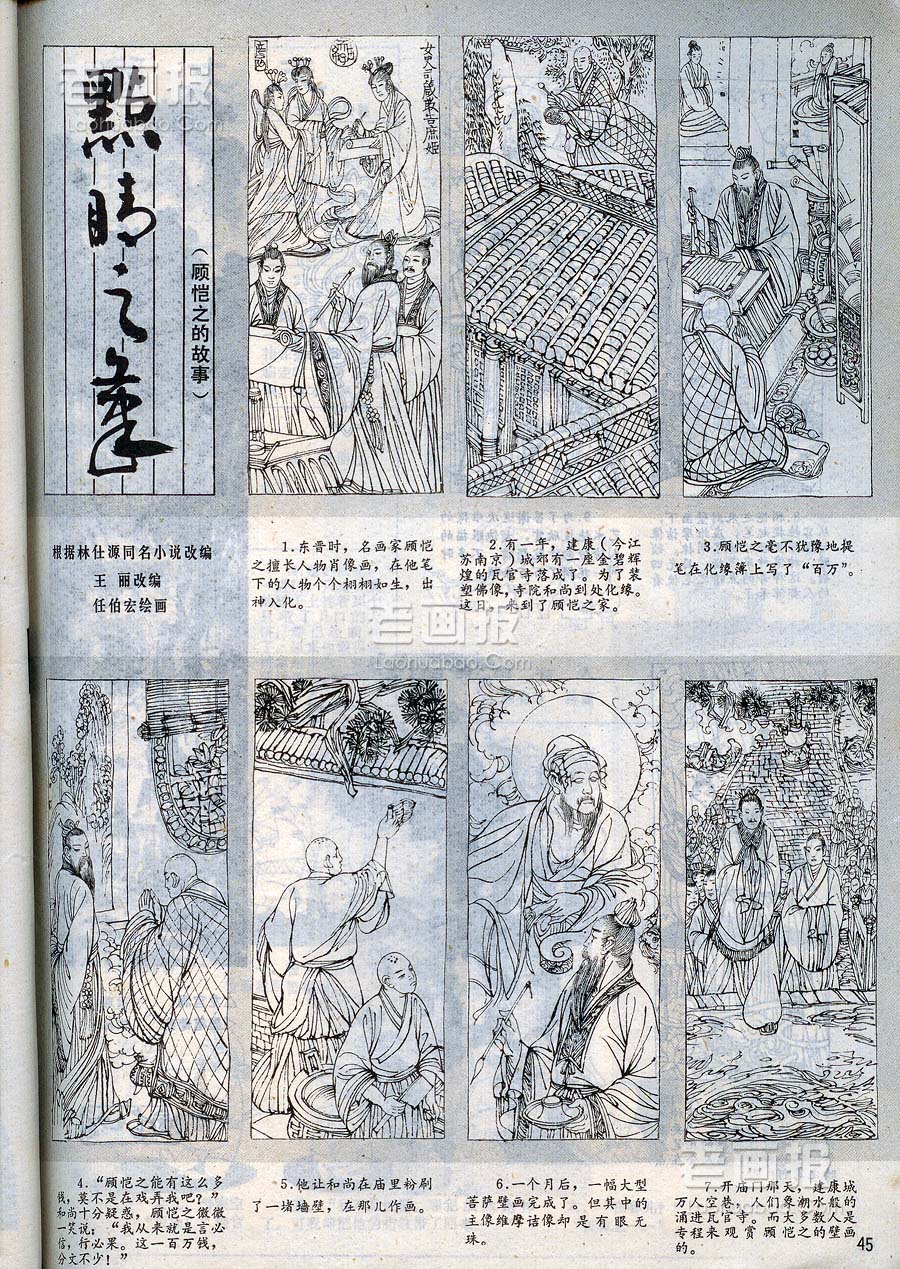 點
睛
之
筆
（顾恺之的故事）
女史司箴敢告庶姬
根据林仕源同名小说改编
王 丽改编
任伯宏绘画
1.东晋时，名画家顾恺
之擅长人物肖像画，在他笔
下的人物个个栩栩如生，出
神入化。
2.有一年，建康（今江
苏南京）城郊有一座金碧辉
煌的瓦官寺落成了。为了装
塑佛像，寺院和尚到处化缘。
这日，来到了顾恺之家。
3.顾恺之毫不犹豫地提
笔在化缘簿上写了“百万”。
老画报
Laohuabao.Com
4.“顾恺之能有这么多
钱，莫不是在戏弄我吧？”
和尚十分疑惑，顾恺之微微
一笑说：“我从来就是言必
信，行必果。这一百万钱，
分文不少！”
5.他让和尚在庙里粉刷
了一堵墙壁，在那儿作画。
6.一个月后，一幅大型
菩萨壁画完成了。但其中的
主像维摩诘像却是有眼无
珠。
7.开庙门那天，建康城
万人空巷，人们象潮水般的
涌进瓦官寺。而大多数人是
专程来观赏顾恺之的壁画
的。
45